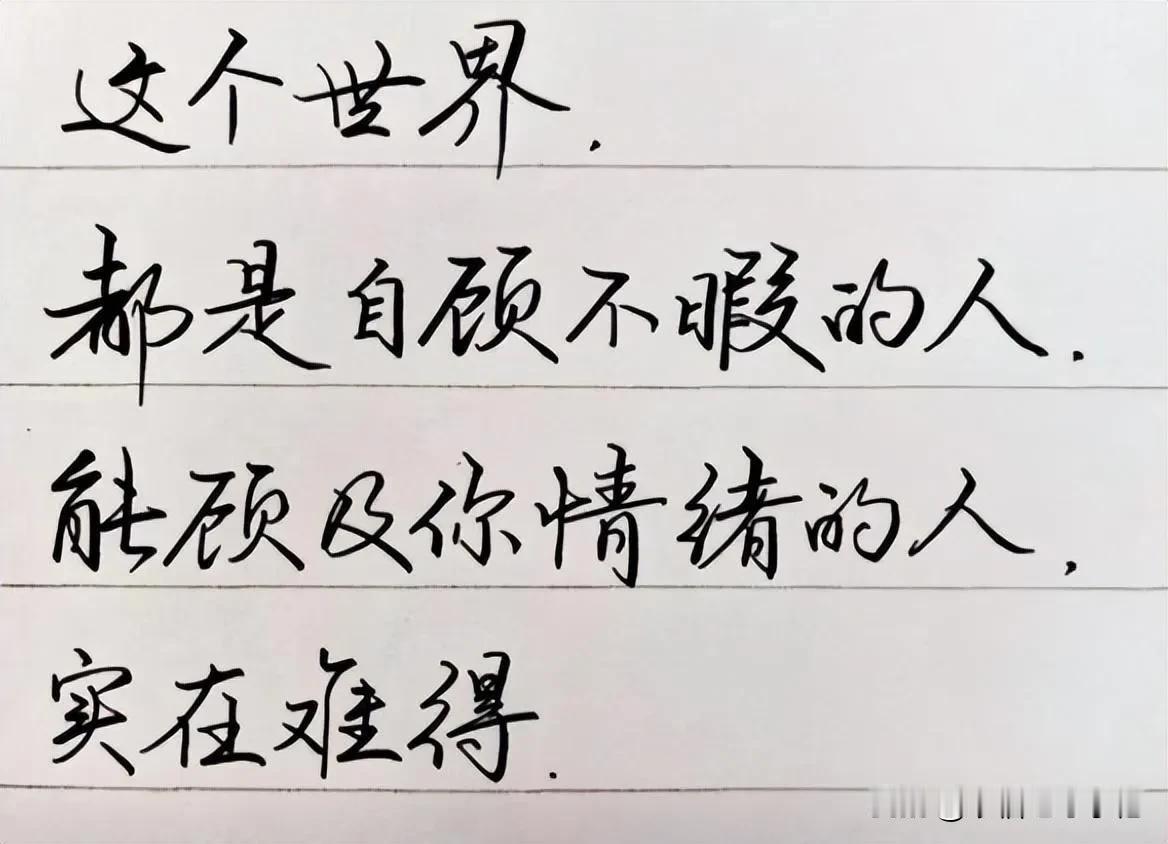 这个世界.
都是自顾不暇的人.
能顾及你情绪的人,
实在难得.